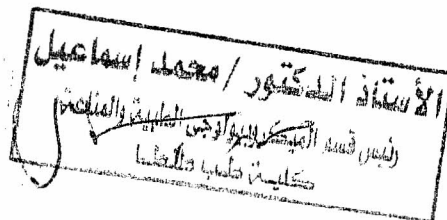 الأستاذ الدكتور / محمد إسماعيل
رئيس قسم الميكروبيولوجى الطبية والمناعة
كلية طب طنطا